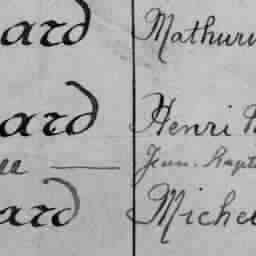 ard Mathuri
ard Henri
ee — Jean. Bapt
ard Michel